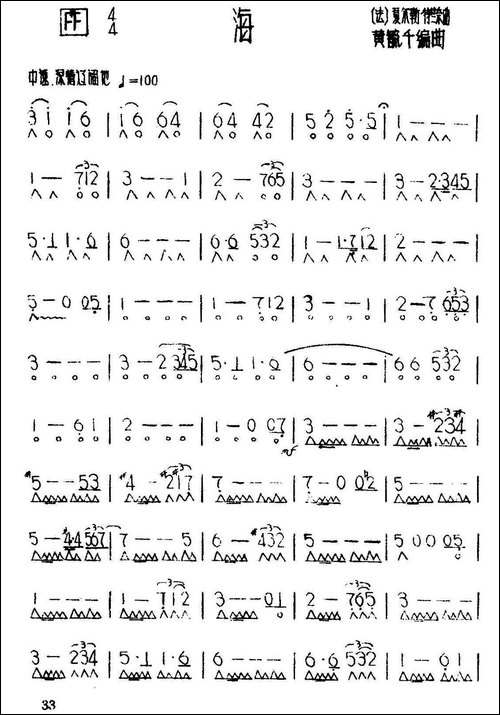 4/4 海 (法)夏尔勒·特雷内曲
黄毓千编曲
中速、深情辽阔地 ♩=100
3 1 1 6 | 1 6 6 4 | 6 4 4 2 | 5 2 5 · 5 | 1 - - - |
1 - - 7 1 2 | 3 - - 1 | 2 - - 7 6 5 | 3 - - - | 3 - - 2 · 3 4 5 |
5 · 1 1 · 6 | 6 - - - | 6 · 6 5 3 2 | 1 - 1 · 7 1 2 | 2 - - - |
5 - 0 0 5 | 1 - - - | 1 - - 7 1 2 | 3 - - 1 | 2 - 7 6 5 3 |
3 - - - | 3 - - 2 3 4 5 | 5 · 1 1 · 6 | 6 - - - | 6 6 5 3 2 |
1 - 6 1 | 2 - - - | 1 - 0 0 7 | 3 - - - | 3 - #2 3 #4 |
mf
#5 - - 5 3 | #4 - #2 1 7 | 7 - - - | 7 - 0 0 2 | 5 - - - |
5 - #4 4 5 6 7 | 7 - - 5 | 6 - #4 3 2 | 5 - - - | 5 0 0 0 5 |
1 - - - | 1 - 7 1 2 | 3 - - 0 1 | 2 - 7 6 5 | 3 - - - |
3 - 2 3 4 | 5 · 1 1 · 6 | 6 - - - | 6 · 6 5 3 2 | 1 - 6 1 |
33